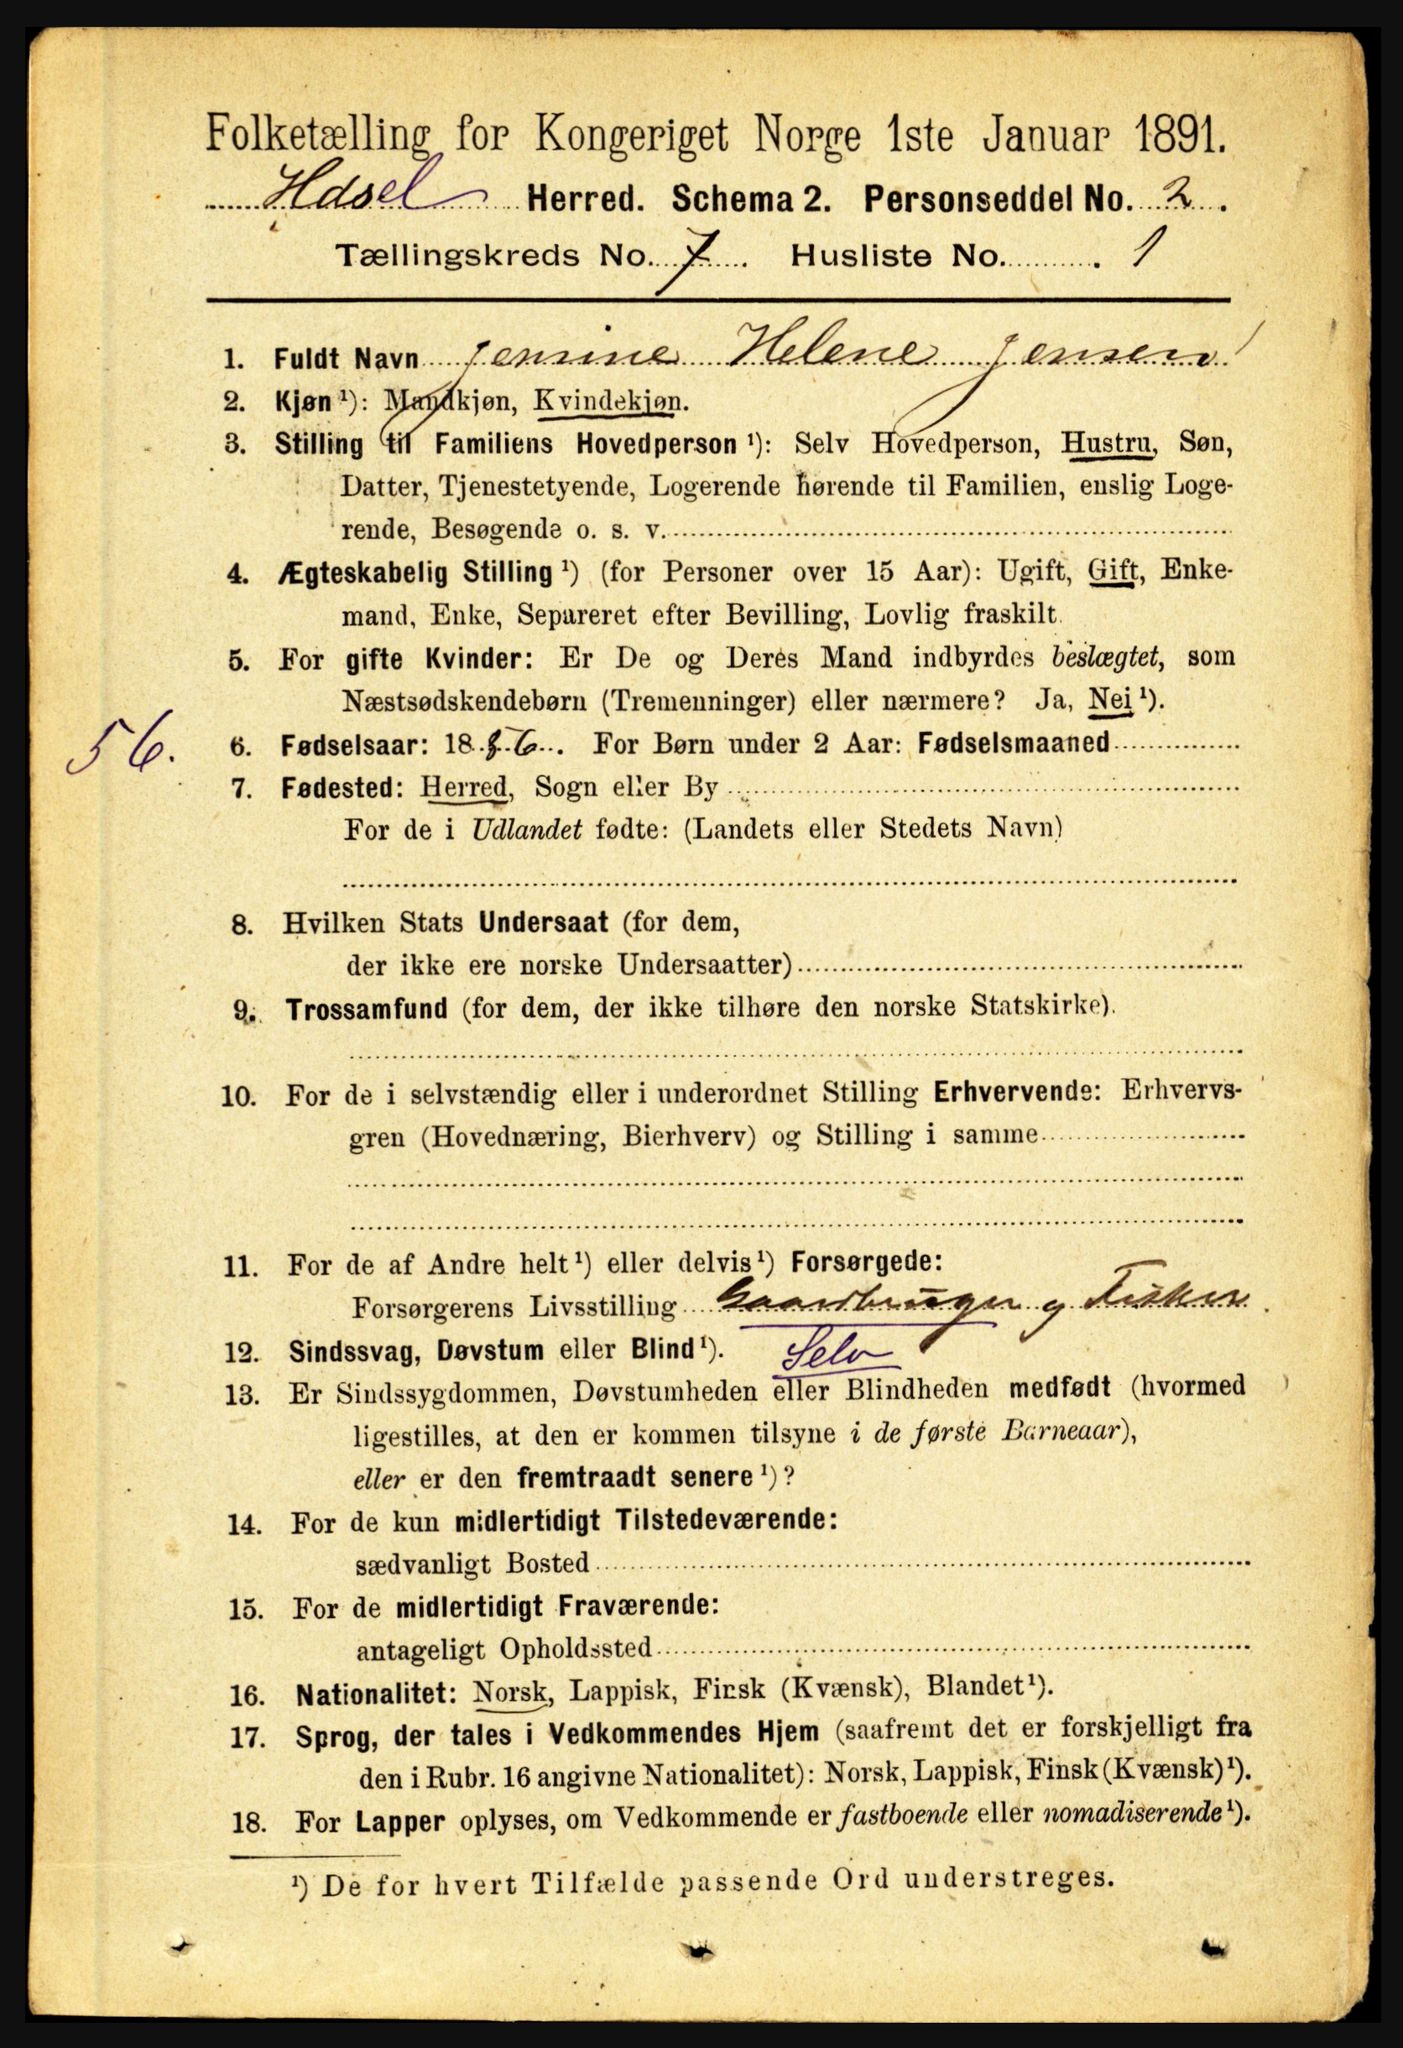 Folketælling for Kongeriget Norge 1ste Januar 1891.
Hdsel Herred. Schema 2. Personseddel No. 2.
Tællingskreds No. 7. Husliste No. 1
1. Fuldt Navn Jensine Helene Jensen
2. Kjøn ¹): Mandkjøn, Kvindekjøn.
3. Stilling til Familiens Hovedperson ¹): Selv Hovedperson, Hustru, Søn,
Datter, Tjenestetyende, Logerende hørende til Familien, enslig Loge-
rende, Besøgende o. s. v.
4. Ægteskabelig Stilling ¹) (for Personer over 15 Aar): Ugift, Gift, Enke-
mand, Enke, Separeret efter Bevilling, Lovlig fraskilt.
5. For gifte Kvinder: Er De og Deres Mand indbyrdes beslægtet, som
Næstsødskendebørn (Tremenninger) eller nærmere? Ja, Nei ¹).
56.
6. Fødselsaar: 18 . For Børn under 2 Aar: Fødselsmaaned
7. Fødested: Herred, Sogn eller By
For de i Udlandet fødte: (Landets eller Stedets Navn)
8. Hvilken Stats Undersaat (for dem,
der ikke ere norske Undersaatter)
9. Trossamfund (for dem, der ikke tilhøre den norske Statskirke).
10. For de i selvstændig eller i underordnet Stilling Erhvervende: Erhvervs-
gren (Hovednæring, Bierhverv) og Stilling i samme
11. For de af Andre helt ¹) eller delvis ¹) Forsørgede:
Forsørgerens Livsstilling Gaardbruger og Fisker
12. Sindssvag, Døvstum eller Blind ¹). Selv
13. Er Sindssygdommen, Døvstumheden eller Blindheden medfødt (hvormed
ligestilles, at den er kommen tilsyne i de første Barneaar),
eller er den fremtraadt senere ¹)?
14. For de kun midlertidigt Tilstedeværende:
sædvanligt Bosted
15. For de midlertidigt Fraværende:
antageligt Opholdssted
16. Nationalitet: Norsk, Lappisk, Finsk (Kvænsk), Blandet ¹).
17. Sprog, der tales i Vedkommendes Hjem (saafremt det er forskjelligt fra
den i Rubr. 16 angivne Nationalitet): Norsk, Lappisk, Finsk (Kvænsk) ¹).
18. For Lapper oplyses, om Vedkommende er fastboende eller nomadiserende ¹).
¹) De for hvert Tilfælde passende Ord understreges.